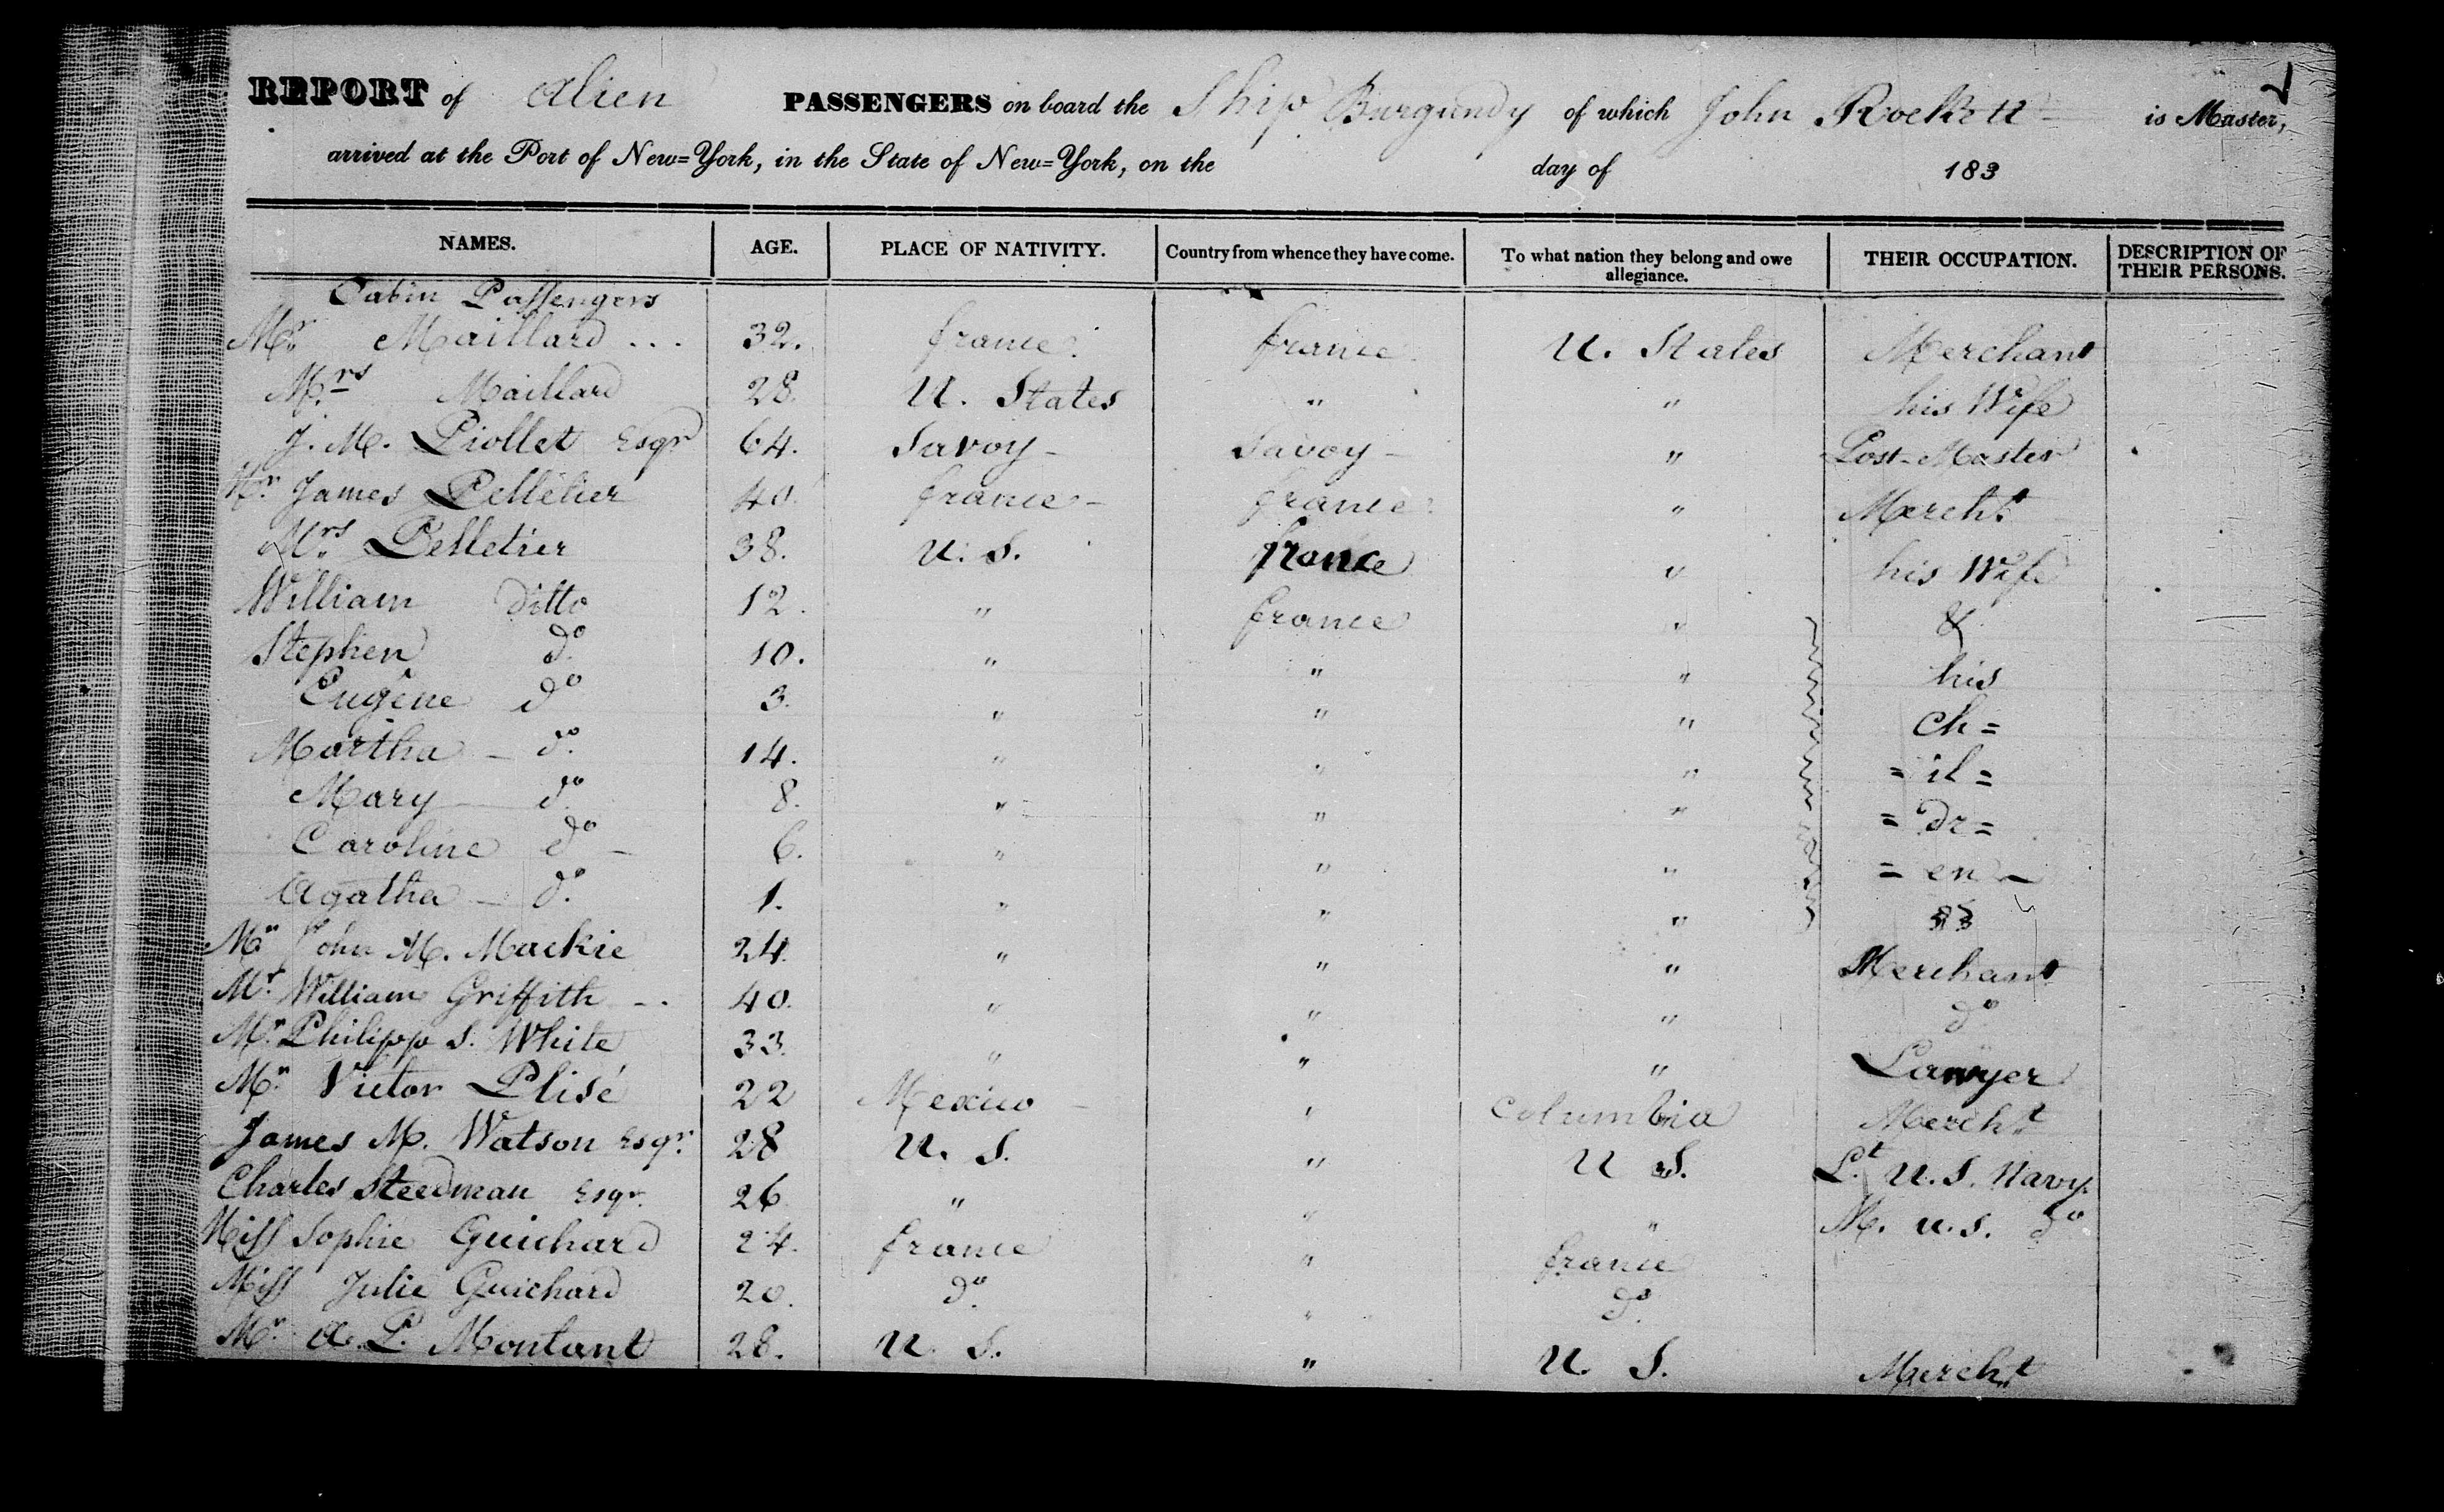 2
REPORT of Alien PASSENGERS on board the Ship Burgundy of which John Rockett is Master,
arrived at the Port of New=York, in the State of New=York, on the day of 183
NAMES. AGE. PLACE OF NATIVITY. Country from whence they have come. To what nation they belong and owe allegiance. THEIR OCCUPATION. DESCRIPTION OF THEIR PERSONS.
Cabin Passengers
Mr. Maillard ... 32. france. france. U. States Merchant
Mrs Maillard 28. U. States " " his Wife
J. M. Piollet Esqr 64. Savoy - Savoy - " Post-Master
Mr. James Pelletier 40. france - france " Mercht
Mrs Pelletier 38. U. S. france " his Wife
William Ditto 12. " france " &
Stephen do. 10. " " " his
Eugène do 3. " " " ch =
Martha - do. 14. " " " = il =
Mary - do. 8. " " " = dr =
Caroline do - 6. " " " = en -
Agatha - do. 1. " " "
Mr John M. Mackie 24. " " " Merchant
Mr. William Griffith - . 40. " " " do
Mr. Philipp S. White 33. " " " Lawyer
Mr Victor Plisé 22 Mexico - " Columbia Mercht
James M. Watson Esqr. 28 U. S. " U S. Lt U.S. Navy.
Charles Steedman Esqr. 26. " " " M. U.S. do
Miss Sophie Guichard 24. france " france
Miss Julie Guichard 20. do. " do.
Mr. A. P. Montant 28. U. S. " U. S. Mercht